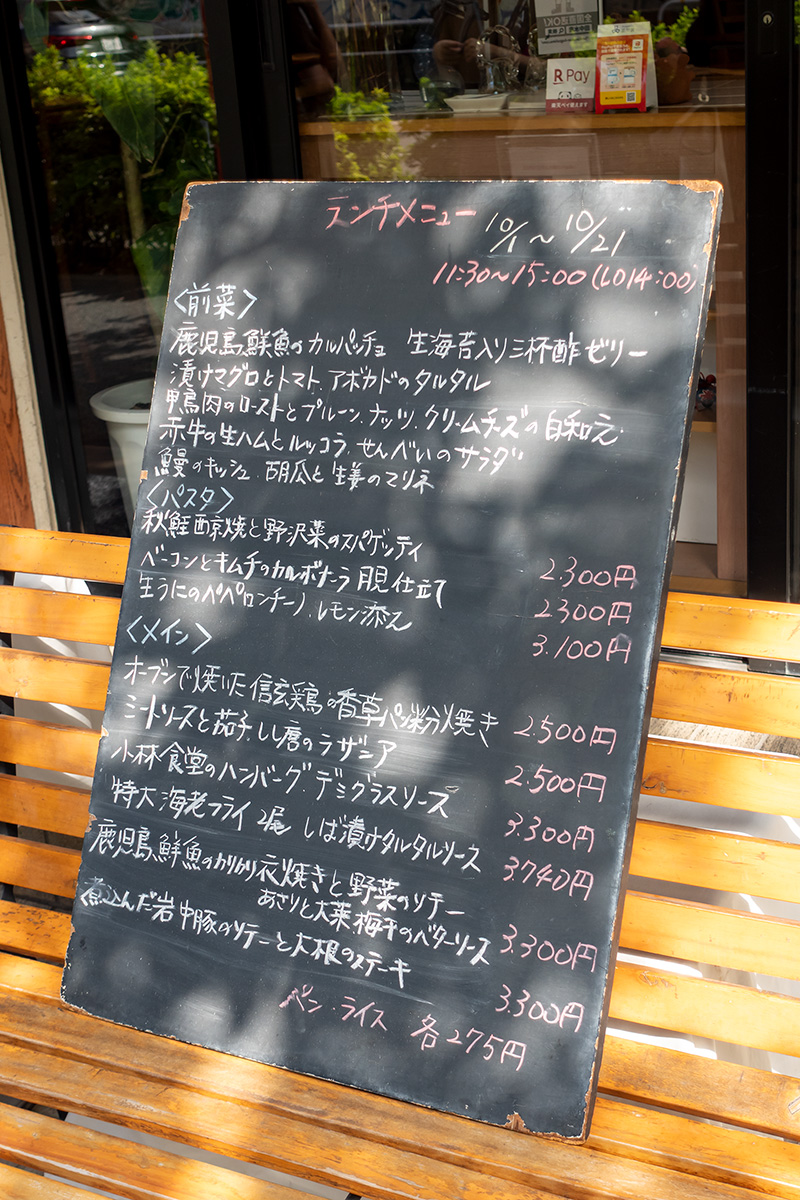 OK!
R Pay
ランチメニュー 10/1〜10/21
11:30〜15:00(LO14:00)
<前菜>
鹿児島鮮魚のカルパッチョ 生海苔入り三杯酢ゼリー
漬けマグロとトマト、アボカドのタルタル
鴨肉のローストとプルーン、ナッツ、クリームチーズの白和え
赤牛の生ハムとルッコラ、せんべいのサラダ
鰻のキッシュ、胡瓜と生姜のマリネ
<パスタ>
秋鮭西京焼と野沢菜のスパゲッティ 2.300円
ベーコンとキムチのカルボナーラ 月見仕立て 2300円
生うにのペペロンチーノ、レモン添え 3.100円
<メイン>
オーブンで焼いた信玄鶏の香草パン粉焼き 2.500円
ミートソースと茄子、しし唐のラザニア 2.500円
小林食堂のハンバーグ、デミグラスソース 3.300円
特大海老フライ2尾 しば漬けタルタルソース 3.740円
鹿児島鮮魚のカリカリ衣焼きと野菜のソテー
あさりと大葉梅干のバターソース 3.300円
煮込んだ岩中豚のソテーと大根のステーキ 3.300円
パン・ライス 各275円